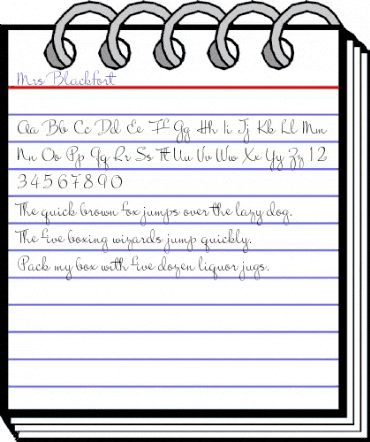 Mrs Blackfort
Aa Bb Cc Dd Ee Ff Gg Hh Ii Jj Kk Ll Mm
Nn Oo Pp Qq Rr Ss Tt Uu Vv Ww Xx Yy Zz 1 2
3 4 5 6 7 8 9 0
The quick brown fox jumps over the lazy dog.
The five boxing wizards jump quickly.
Pack my box with five dozen liquor jugs.